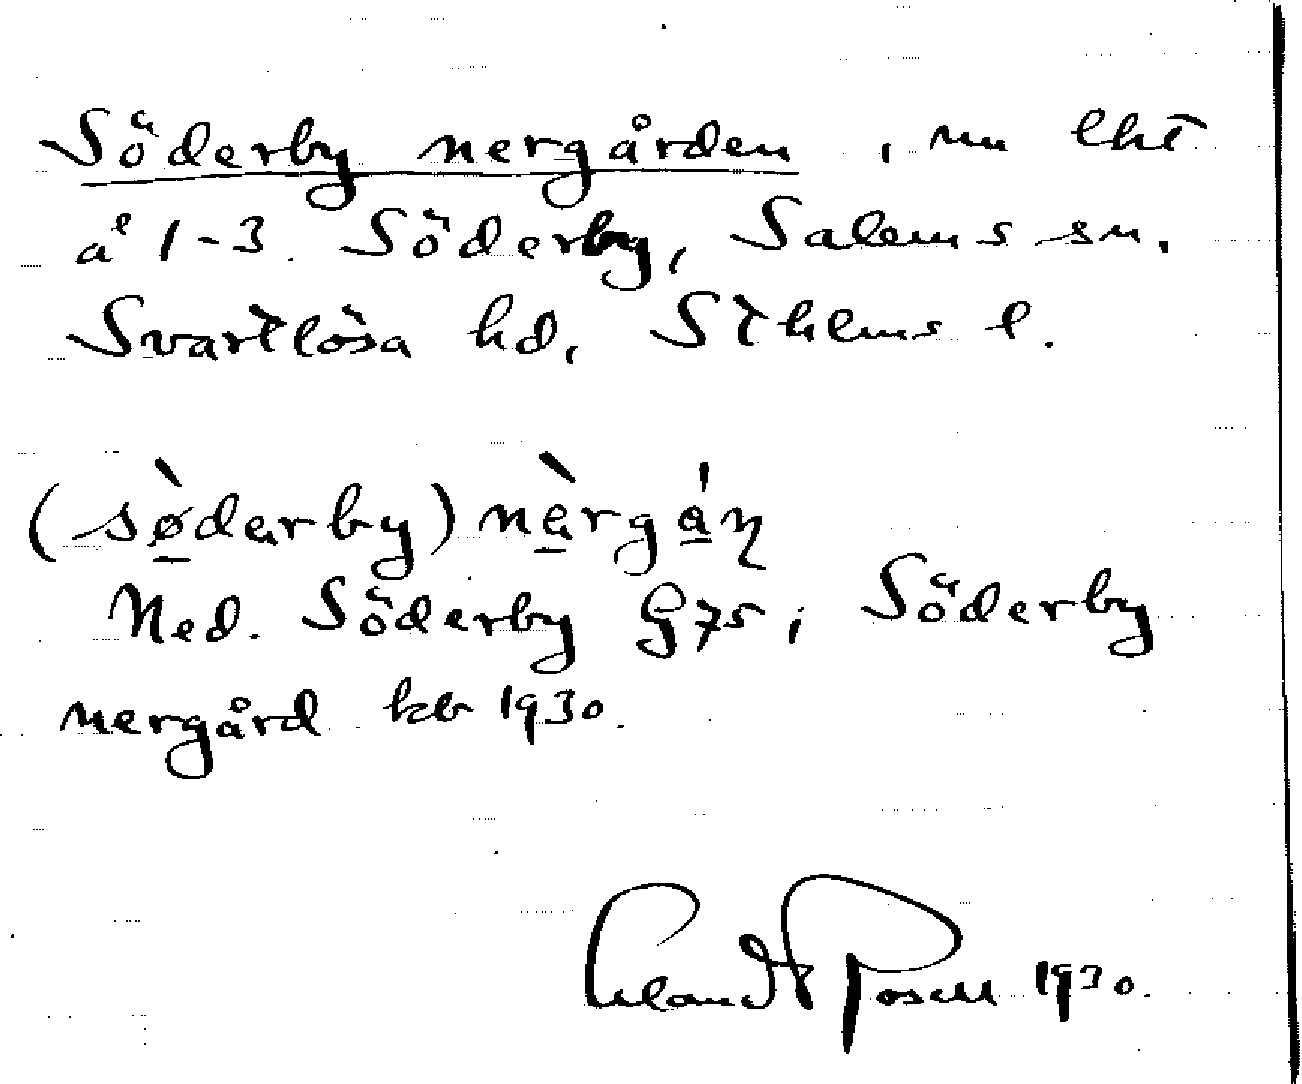 Söderby nergården, nu lht
å 1-3 Söderby, Salems sn.
Svartlösa hd, Sthlms l.
(sø̀derby) nèrgá̀n
Ned. Söderby G75; Söderby
nergård kb 1930.
Erland Rosell 1930.